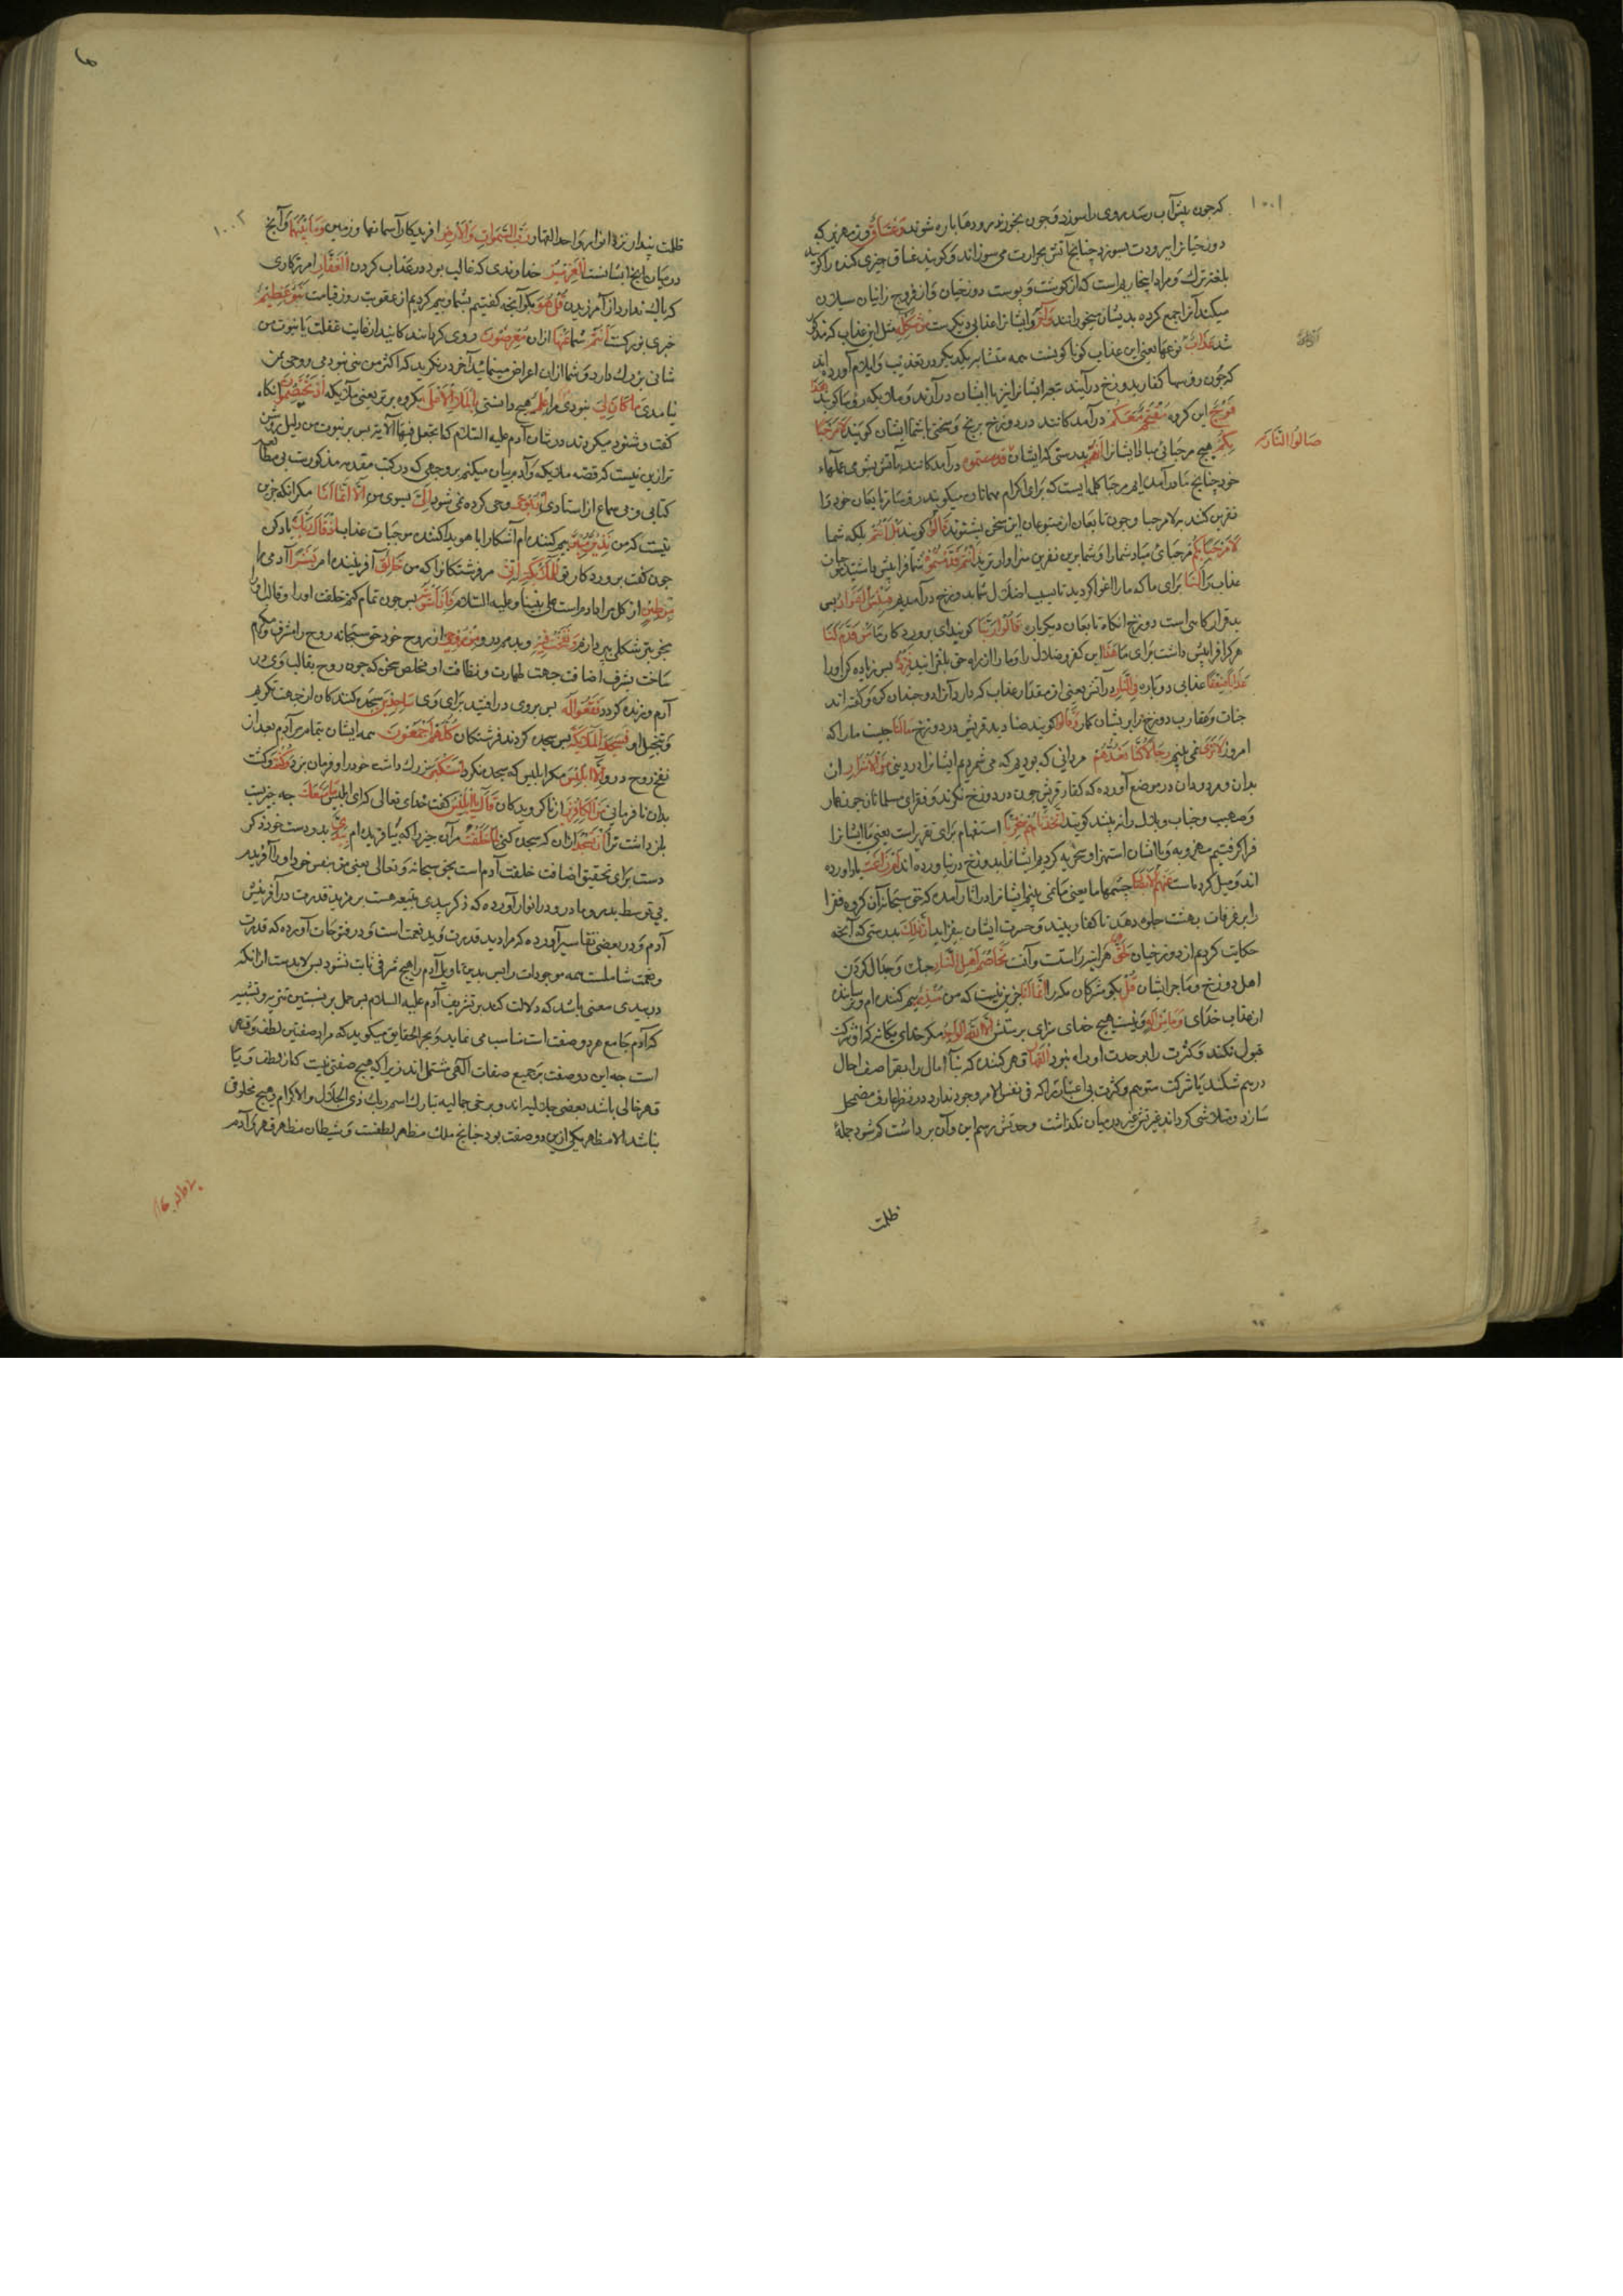 ۱۰۰۱
که چون پیش آب رسد روی را بسوزد و چون بخورند رودها پاره شوند وَغَسَّاقٌ و زمهریر که
دوزخیانرا ببرودت بسوزد چنانچه آتش بحرارت می سوزاند و کویند غساق چیزی کنده را کویند
بلغت ترک و مراد اینجا ریم است که از کوشت و پوست دوزخیان و از فروج زانیان سیلان
میکند آنرا جمع کرده بدیشان میخورانند وَآخَرُ و ایشانرا عذابی دیکرست مِنْ شَکْلِهِ مثل این عذاب که مذکور
شد أَزْوَاجٌ نوعها یعنی این عذاب کوناکونست همه متشابه یکدیکر در تعذیب و ایلام آورده اند
که چون رؤسا کفار بدوزخ درآیند تبع ایشانرا نیز با ایشان درآرند و ملایکه رؤسا کویند هَذَا
فَوْجٌ این کروه مُقْتَحِمٌ مَعَکُمْ درآمد کانند در دوزخ برنج و سختی با شما ایشان کویند لَا مَرْحَبًا
بِهِمْ هیچ مرحبائی مباد ایشانرا إِنَّهُمْ بدرستی که ایشان درآمد کانند بآتش بشومی عملهاء
صَالُوا النَّارِ
خود چنانچه ما درآمدیم مرحبا کلمه ایست که برای اکرام مهمانان میکویند رؤسا تابعان خود را
نفرین کنند به لا مرحبا و چون تابعان از متبوعان این سخن بشنوند قَالُوا کویند بَلْ أَنْتُمْ بلکه شما
لَا مَرْحَبًا بِکُمْ مرحبائی مباد شما را و شما برین نفرین سزاوارترید أَنْتُمْ قَدَّمْتُمُوهُ شما فرا پیش داشتید موجبات
عذاب را لَنَا برای ما که ما را اغوا کردید تا بسبب اضلال شما بدوزخ درآمدیم فَبِئْسَ الْقَرَارُ پس
بد قرارکاهی است دوزخ انکاه تابعان دیکرباره قَالُوا رَبَّنَا کویند ای پروردکار ما مَنْ قَدَّمَ لَنَا
هرکه فرا پیش داشت برای ما هَذَا این کفر و ضلال را و ما را از راه حق بلغزانید فَزِدْهُ پس زیاده کن او را
عَذَابًا ضِعْفًا عذابی دوباره فِي النَّارِ در آتش یعنی آن مقدار عذاب که دارد آنرا دوچندان کن و کفته اند
حیات و عقارب دوزخ را بریشان کمار وَقَالُوا کویند صنادید قریش در دوزخ مَا لَنَا چیست ما را که
امروز لَا نَرَى نمی بینیم رِجَالًا کُنَّا نَعُدُّهُمْ مردانی که بودیم که می شمردیم ایشانرا در دنیی مِنَ الْأَشْرَارِ از
بدان و مردودان در موضح آورده که کفار قریش چون در دوزخ نکرند و فقرای مسلمانان چون عمار
و صهیب و خباب و بلال را نه بینند کویند أَتَّخَذْنَاهُمْ سِخْرِيًّا استفهام برای تقریر است یعنی ما ایشانرا
فرا کرفتیم سخریه و با ایشان استهزا و سخریه کردیم ایشانرا بدوزخ درنیاورده اند أَمْ زَاغَتْ یا آورده
اند و میل کرده است عَنْهُمُ الْأَبْصَارُ چشمهاء ما یعنی ما نمی بینیم ایشانرا در اثار آمده که حق سبحانه آن کروه فقرا
را بر غرفات بهشت جلوه دهد تا کفار ببینند و حسرت ایشان بیفزاید إِنَّ ذَلِکَ بدرستی که آنچه
حکایت کردیم از دوزخیان لَحَقٌّ هر آینه راستست و آنست تَخَاصُمُ أَهْلِ النَّارِ جنک و جدال کردن
اهل دوزخ و ماجرا ایشان قُلْ بکو مشرکان مکه را إِنَّمَا أَنَا جزین نیست که من مُنْذِرٌ بیم کننده ام و ترساننده
از عذاب خدای وَمَا مِنْ إِلَهٍ و نیست هیچ خدای سزای پرستش إِلَّا اللَّهُ الْوَاحِدُ مکر خدای یکانه که او شرکت
قبول نکند و کثرت را بوحدت او راه نبود الْقَهَّارُ قهر کننده که بنآ آمال را بقواصف اجال
درهم شکند یا شرکت متوهم و کثرت بی اعتبار را که فی نفس الامر وجود ندارد در نظر عارف مضمحل
سازد و متلاشی کرداند غیرتش غیر در میان نکذاشت وحدتش رسم این و آن برداشت کم شود جملهٔ
ظلمت
۱۰۰۲
ظلمت پندار نزد انوار واحد القهار رَبُّ السَّمَوَاتِ وَالْأَرْضِ افریدکار آسمانها و زمین وَمَا بَيْنَهُمَا و آنچه
در میان ایشانست الْعَزِیزُ خداوندی که غالب بود در عذاب کردن الْغَفَّارُ امرزکاری
که باک ندارد از آمرزیدن قُلْ هُوَ بکو آنچه کفتیم شما و بیم کردیم از عقوبت روز قیامت نَبَأٌ عَظِيمٌ
خبری بزرکست أَنْتُمْ شما عَنْهُ ازان مُعْرِضُونَ روی کردانند کانید از غایت غفلت یا نبوت من
شانی بزرک دارد و شما ازان اعراض مینمائید آخر در نکرید که اکثر من نبی نبودمی و وحی بمن
نیامدی مَا کَانَ لِيَ نبودی مرا مِنْ عِلْمٍ هیچ دانستنی بِالْمَلَإِ الْأَعْلَى بکروه برتر یعنی ملایکه إِذْ يَخْتَصِمُونَ انکاه
کفت و شنود میکردند در شان آدم علیه السلام که اتجعل فیها الآیة پس بر نبوت من دلیل روشن
ترازین نیست که قصه ملایکه و آدم بیان میکنم بر وجهی که در کتب مقدمه مذکورست بی مطالعه
کتابی و بی سماع از استادی إِنْ يُوحَى وحی کرده نمی شود إِلَيَّ بسوی من إِلَّا أَنَّمَا أَنَا مکر آنکه جزین
نیست که من نَذِيرٌ مُبِينٌ بیم کننده ام آشکارا یا هویدا کننده موجبات عذاب إِذْ قَالَ رَبُّکَ یاد کن
چون کفت پروردکار تو لِلْمَلَائِکَةِ إِنِّي مر فرشتکانرا که من خَالِقٌ آفریننده ام بَشَرًا آدمی را
مِنْ طِينٍ از کل مراد ادم است علی نبینا و علیه السلام فَإِذَا سَوَّيْتُهُ پس چون تمام کنم خلقت او را و قالب او را
بخوبتر شکلی بپردازم وَنَفَخْتُ فِيهِ و بدمم درو مِنْ رُوحِي از روح خود حق سبحانه روح را مشرف و مکرم
ساخت بشرف اضافت جهت طهارت و نظافت او ملخص سخن که چون روح بقالب وی در
آرم و زنده کردد فَقَعُوا لَهُ پس بروی درافتید برای وی سَاجِدِينَ سجده کنندکان از جهت تکریم
و تبجیل او فَسَجَدَ الْمَلَائِکَةُ پس سجده کردند فرشتکان کُلُّهُمْ أَجْمَعُونَ همه ایشان بتمام مر آدم بعد از
نفخ روح درو إِلَّا إِبْلِيسَ مکر ابلیس که سجده نکرد اسْتَکْبَرَ بزرک داشت خود را و فرمان نبرد وَکَانَ و کشت
بدان نافرمانی مِنَ الْکَافِرِينَ از ناکرویدکان قَالَ يَا إِبْلِيسُ کفت خدای تعالی که ای ابلیس مَا مَنَعَکَ چه چیز بت
باز داشت ترا أَنْ تَسْجُدَ ازان که سجده کنی لِمَا خَلَقْتُ مر آن چیز را که بیافریده ام بِيَدَيَّ بدو دست خود ذکر
دست برای تحقیق اضافت خلقت آدم است بحق سبحانه و تعالی یعنی من بنفس خود او را آفریدم
بی توسط پدر و مادر و در انوار آورده که ذکر یدی بتثنیه هست بر مزید قدرت در آفرینش
آدم و در بعضی تفاسیر آورده که مراد ید قدرت و ید نعمت است و در فتوحات آورده که قدرت
و نعمت شاملست همه موجودات را پس بدین تاویل آدم را هیچ شرفی ثابت نشود پس لابدست ازانکه
در بیدی معنی باشد که دلالت کند بر تشریف آدم علیه السلام پس حمل بر نسبتین تنزیه و تشبیه
که آدم جامع هر دو صفت است مناسب می نماید و بحر الحقایق میکوید که مراد صفتین لطف و قهر
است چه این دو صفت بر جمیع صفات آلهی مشتمل اند زیرا که هیچ صفتی نیست که از لطف و یا
قهر خالی باشد بعضی جلالیه اند و برخی جمالیه تبارک اسم ربک ذی الجلال والاکرام و هیچ مخلوق
نباشد الا مظهر یکی ازین دو صفت بود چنانچ ملک مظهر لطفست و شیطان مظهر قهر و آدم